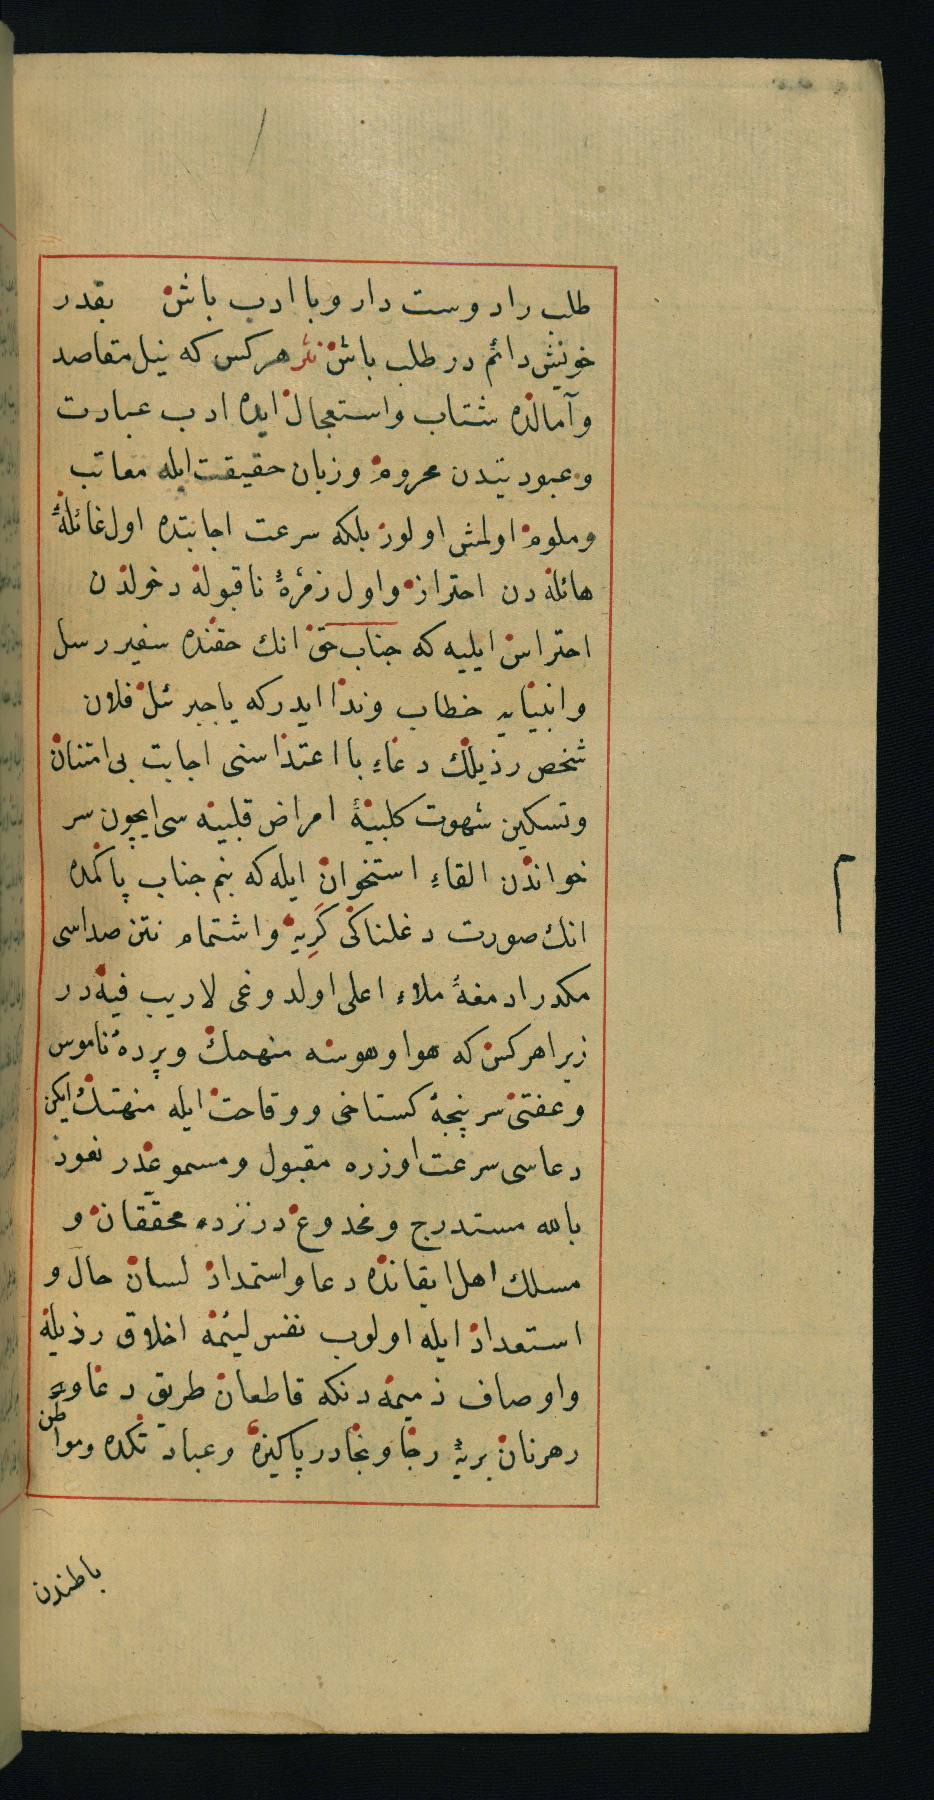 طلب را دوست دار و با ادب باش بقدر
خویش دائم در طلب باش نثر هر کس که نیل مقاصد
وآمالده شتاب واستعجال ایده ادب عبادت
وعبودیتدن محروم وزبان حقیقت ایله معاتب
وملوم اولمش اولور بلکه سرعت اجابتده اول غائلۀ
هائله دن احتراز واول زمرۀ ناقبوله دخولدن
احتراس ایلیه که جناب حق انك حقنده سفیر رسل
وانبیایه خطاب وندا ایدر که یا جبرئل فلان
شخص رذیلك دعاء با اعتداسنی اجابت بی امتنان
وتسکین شهوت کلبیۀ امراض قلبیه سی ایچون سر
خواندن القاء استخوان ایله که بنم جناب پاکمده
انك صورت دغلناکی کریه واشتمام نتن صداسی
مکدر ادمغۀ ملاء اعلی اولدوغی لاریب فیه در
زیرا هر کس که هوا وهوسنه منهمك وپردۀ ناموس
وعفتی سرپنجۀ کستاخی ووقاحت ایله منهتك ایکن
دعاسی سرعت اوزره مقبول ومسموعدر نعوذ
بالله مستدرج ومخدوع در نزد محققان و
مسلك اهل ایقانده دعا واستمداد لسان حال و
استعداد ایله اولوب نفس لئیمه اخلاق رذیله
واوصاف ذمیمه دنکه قاطعان طریق دعا و
رهزنان بریۀ رجا ونجادر پاکیزه وعبادتکده ومواطن
باطندن